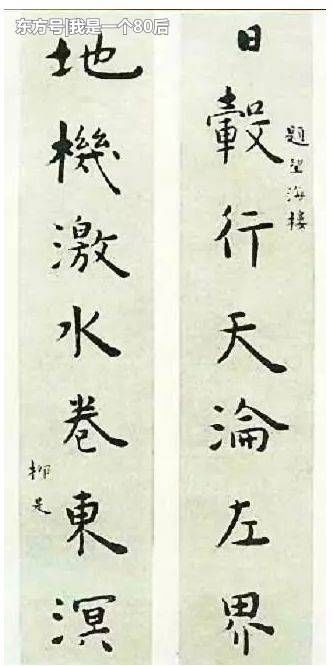 东方号|我是一个80后
日轂行天淪左界
題望海樓
地機激水卷東溟
柳是